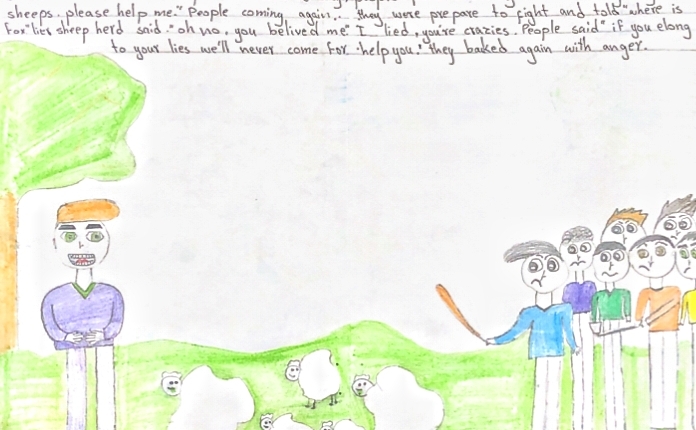 sheeps. please help me." People coming again.. they were prepare to fight and told "where is
Fox" lier sheep herd said." oh no, you belived me" I lied, you're crazies. People said" if you elong
to your lies we'll never come for help you." they baked again with anger.